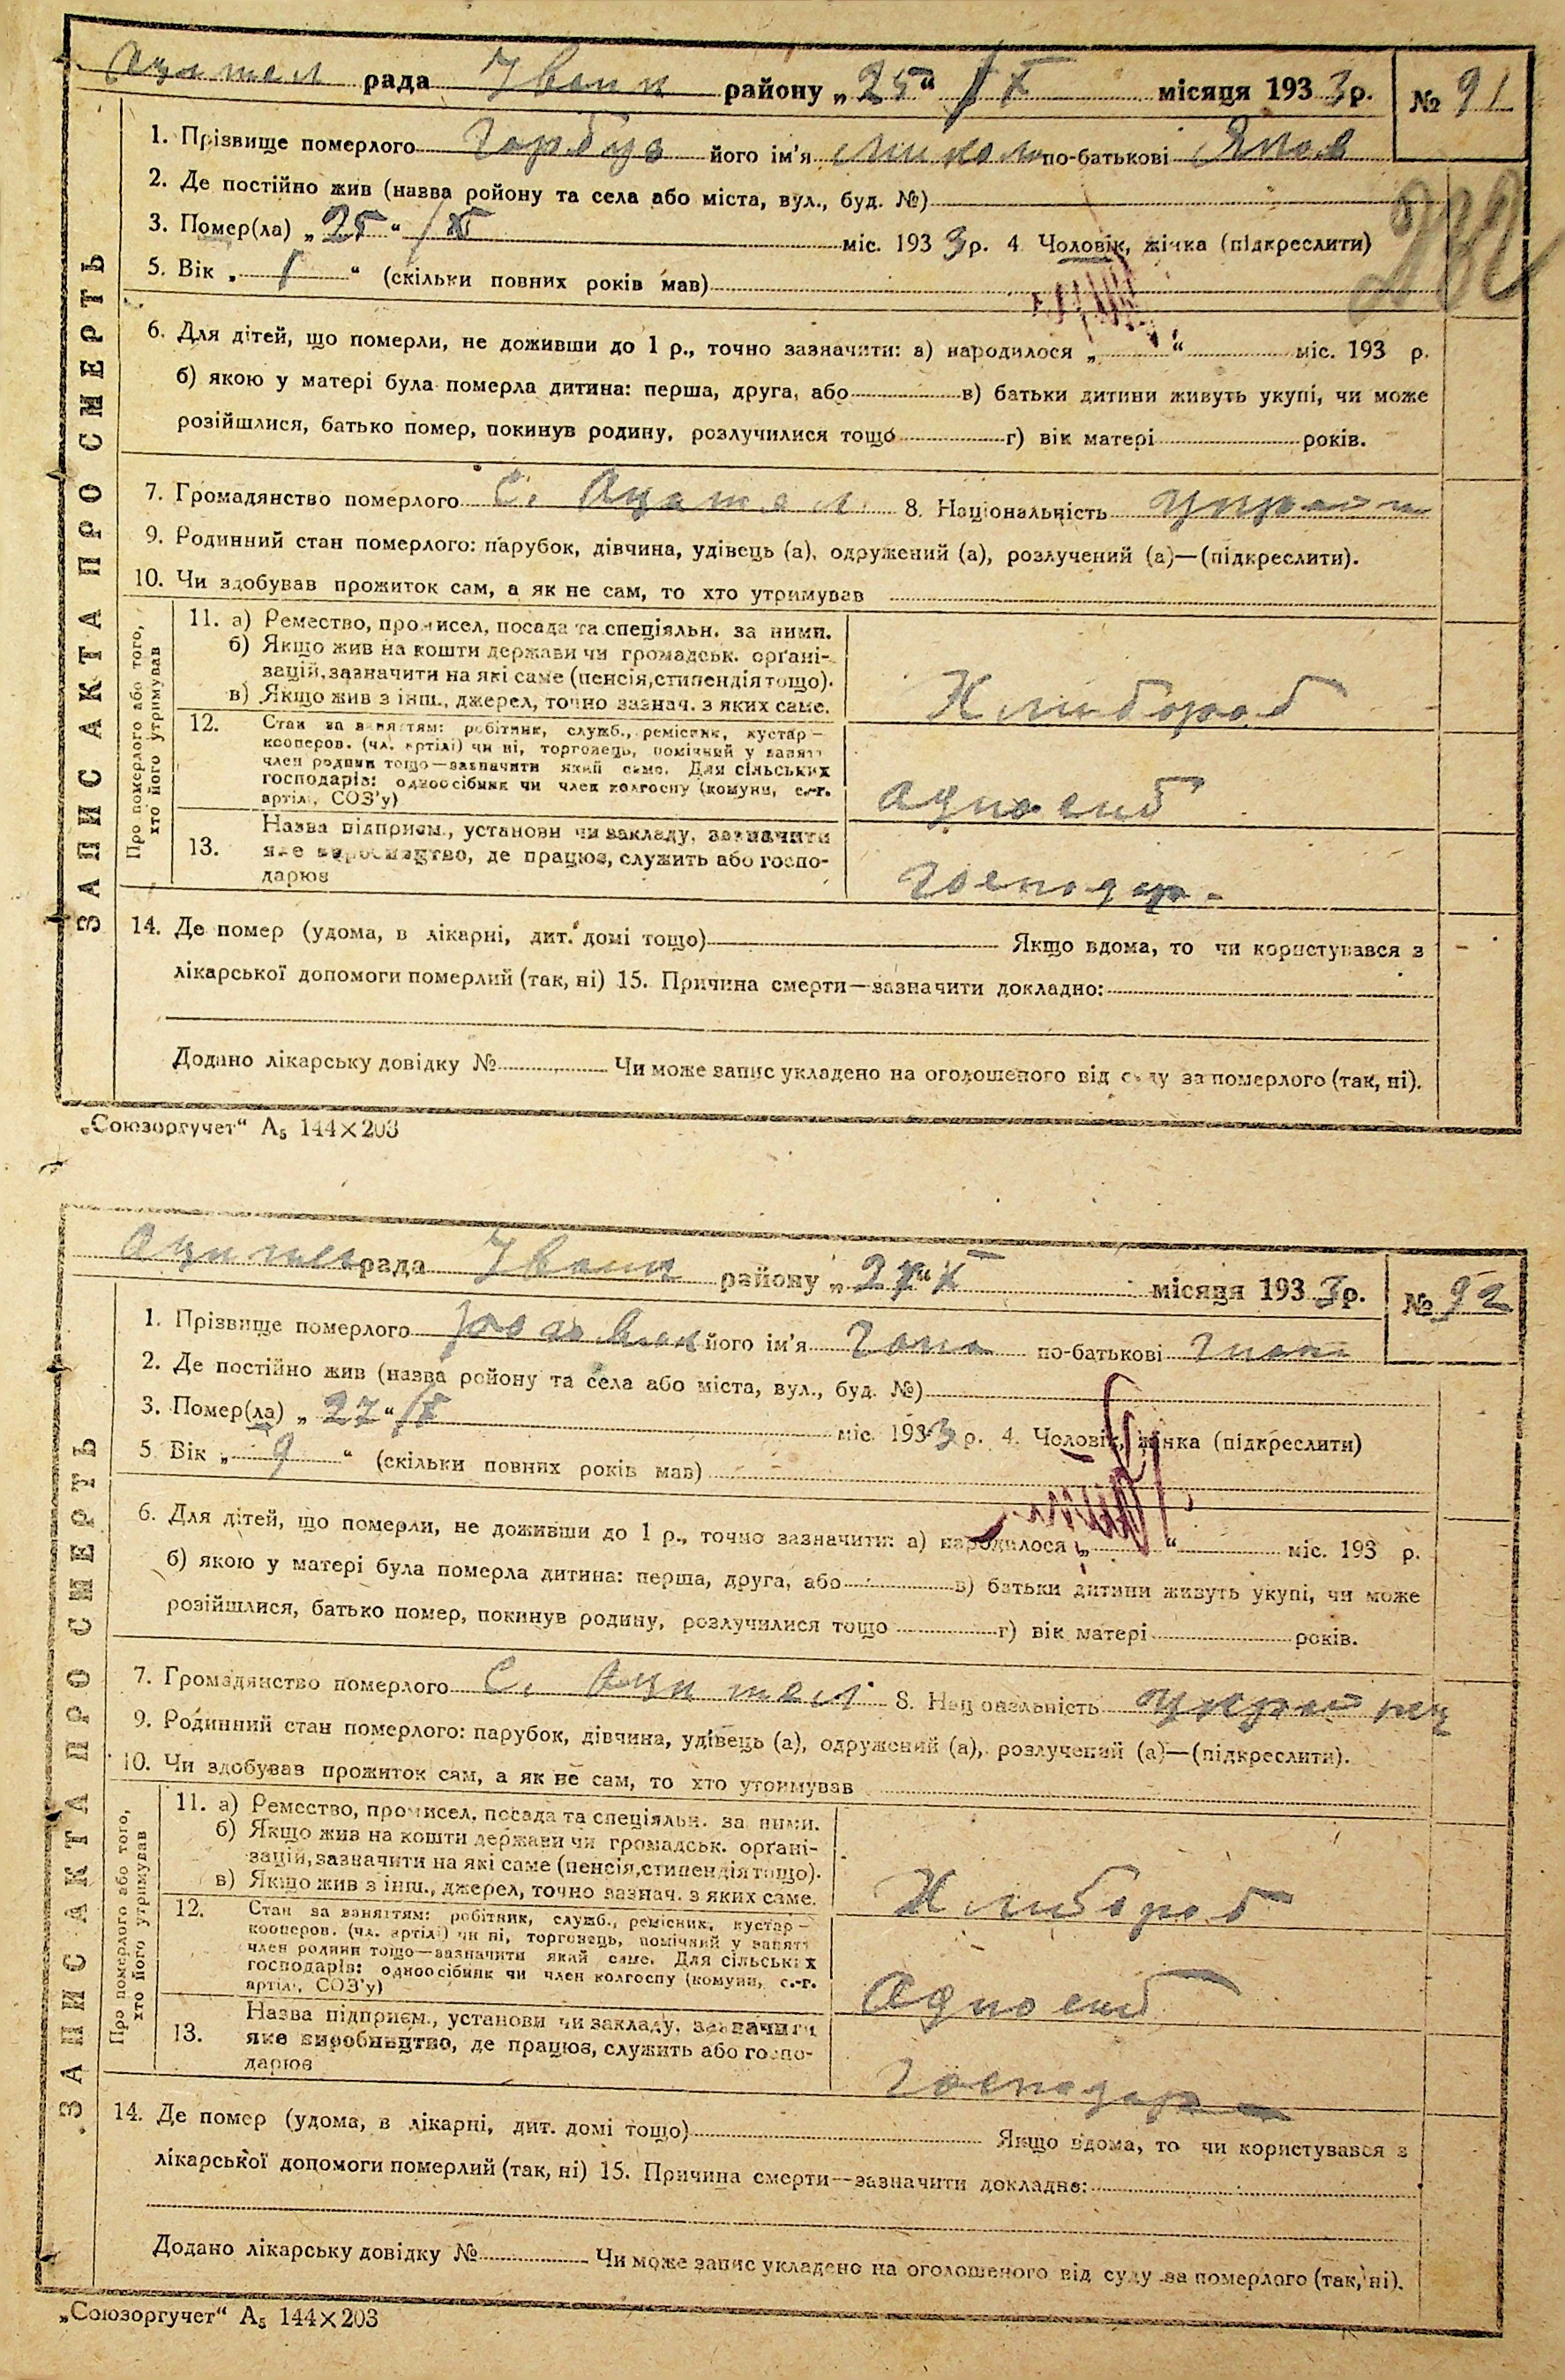 рада Іван району „25“ X місяця 1933 р. № 91
1. Прізвище померлого Гарбуз його ім'я Микола по-батькові Яков
2. Де постійно жив (назва ройону та села або міста, вул., буд. №)
3. Помер(ла) „25“ / X міс. 1933 р. 4 Чоловік, жінка (підкреслити)
5. Вік „1“ (скільки повних років мав)
6. Для дітей, що померли, не доживши до 1 р., точно зазначити: а) народилося „ “ міс. 193 р.
б) якою у матері була померла дитина: перша, друга, або в) батьки дитини живуть укупі, чи може
розійшлися, батько помер, покинув родину, розлучилися тощо г) вік матері років.
7. Громадянство померлого С. 8. Національність украин
9. Родинний стан померлого: парубок, дівчина, удівець (а), одружений (а), розлучений (а)—(підкреслити).
10. Чи здобував прожиток сам, а як не сам, то хто утримував
ЗАПИС АКТА ПРО СМЕРТЬ
Про померлого або того,
хто його утримував
11. а) Ремество, промисел, посада та спеціяльн. за ними.
б) Якщо жив на кошти держави чи громадськ. органі-
зацій, зазначити на які саме (пенсія, стипендія тощо).
в) Якщо жив з інш., джерел, точно зазнач. з яких саме.
Хлибороб
12. Стан за заняттям: робітник, служб., ремісник, кустар—
кооперов. (чл. артілі) чи ні, торговець, помічний у занятт
член родини тощо—зазначити який саме. Для сільських
господарів: одноосібник чи член колгоспу (комуни, с.-г.
артілі, СОЗ'у)
Одноосиб
13. Назва підприєм., установи чи закладу, зазначити
яке виробництво, де працює, служить або госпо-
дарює
Господар.
14. Де помер (удома, в лікарні, дит. домі тощо) Якщо вдома, то чи користувався з
лікарської допомоги померлий (так, ні) 15. Причина смерти—зазначити докладно:
Додано лікарську довідку № Чи може запис укладено на оголошеного від суду за померлого (так, ні).
„Союзоргучет“ А5 144×203
рада Іван району „27“ X місяця 1933 р. № 92
1. Прізвище померлого його ім'я по-батькові
2. Де постійно жив (назва ройону та села або міста, вул., буд. №)
3. Помер(ла) „27“ / X міс. 1933 р. 4. Чоловік, жінка (підкреслити)
5. Вік „9“ (скільки повних років мав)
6. Для дітей, що померли, не доживши до 1 р., точно зазначити: а) народилося „ “ міс. 193 р.
б) якою у матері була померла дитина: перша, друга, або в) батьки дитини живуть укупі, чи може
розійшлися, батько помер, покинув родину, розлучилися тощо г) вік матері років.
7. Громадянство померлого С. 8. Національність
9. Родинний стан померлого: парубок, дівчина, удівець (а), одружений (а), розлучений (а)—(підкреслити).
10. Чи здобував прожиток сам, а як не сам, то хто утримував
ЗАПИС АКТА ПРО СМЕРТЬ
Про померлого або того,
хто його утримував
11. а) Ремество, промисел, посада та спеціяльн. за ними.
б) Якщо жив на кошти держави чи громадськ. органі-
зацій, зазначити на які саме (пенсія, стипендія тощо).
в) Якщо жив з інш., джерел, точно зазнач. з яких саме.
Хлибороб
12. Стан за заняттям: робітник, служб., ремісник, кустар—
кооперов. (чл. артілі) чи ні, торговець, помічний у занятт
член родини тощо—зазначити який саме. Для сільських
господарів: одноосібник чи член колгоспу (комуни, с.-г.
артілі, СОЗ'у)
Одноосиб
13. Назва підприєм., установи чи закладу, зазначити
яке виробництво, де працює, служить або госпо-
дарює
Господар
14. Де помер (удома, в лікарні, дит. домі тощо) Якщо вдома, то чи користувався з
лікарської допомоги померлий (так, ні) 15. Причина смерти—зазначити докладно:
Додано лікарську довідку № Чи може запис укладено на оголошеного від суду за померлого (так, ні).
„Союзоргучет“ А5 144×203